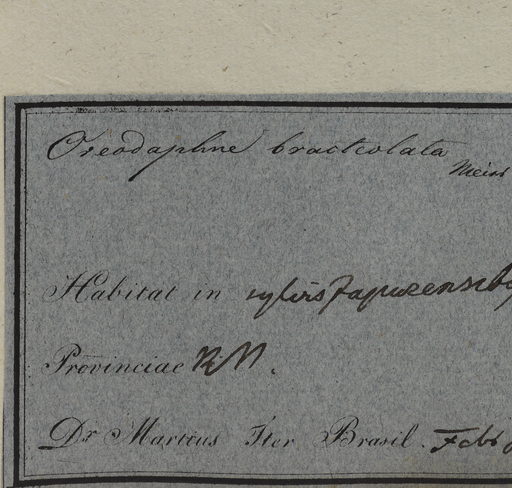 Oreodaphne bracteolata
Meiss
Habitat in sylvis Japurensibus
Provinciae R. N.
Dr. Martius Iter Brasil. Febr